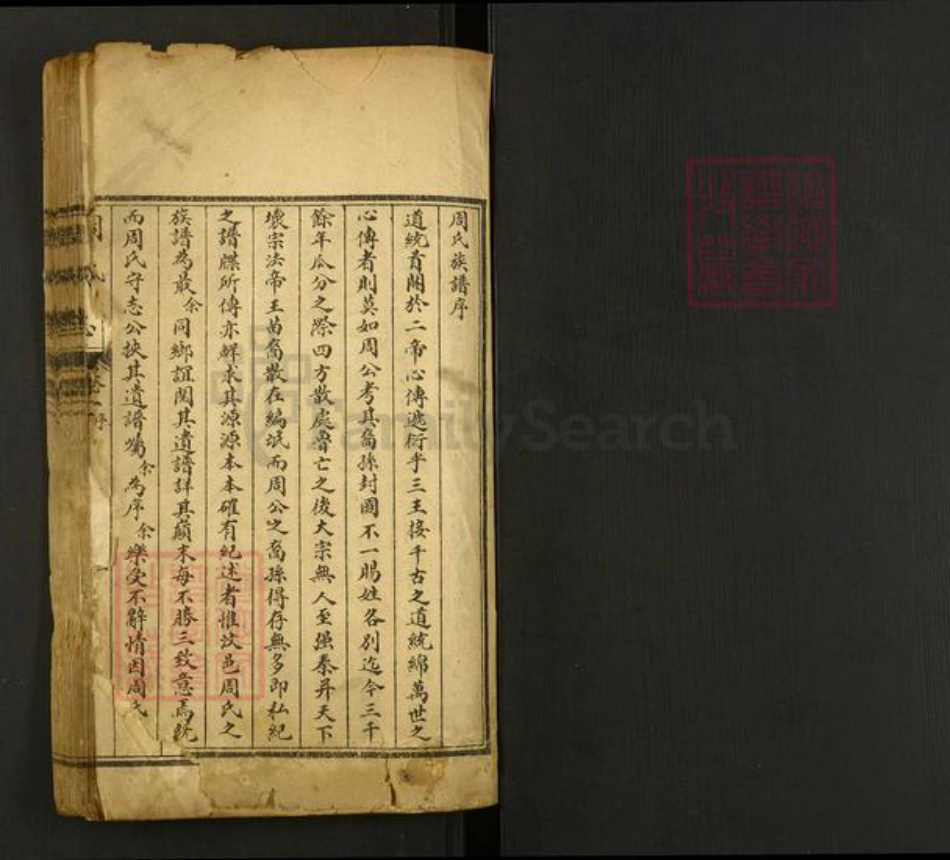 周氏族譜序
道統首開於二帝心傳遞衍乎三王接千古之道統綿萬世之
心傳者則莫如周公考其裔孫封國不一賜姓各別迄今三千
餘年瓜分之際四方散處魯亡之後大宗無人至强秦并天下
壞宗法帝王苗裔散在編氓而周公之裔孫得存無多即私紀
之譜牒所傳亦鮮求其源源本本確有紀述者惟汶邑周氏之
族譜為最余同鄉誼閱其遺譜詳其顛末每不勝三致意焉
而周氏守志公挾其遺譜囑余為序余樂受不辭情因周氏
FamilySearch